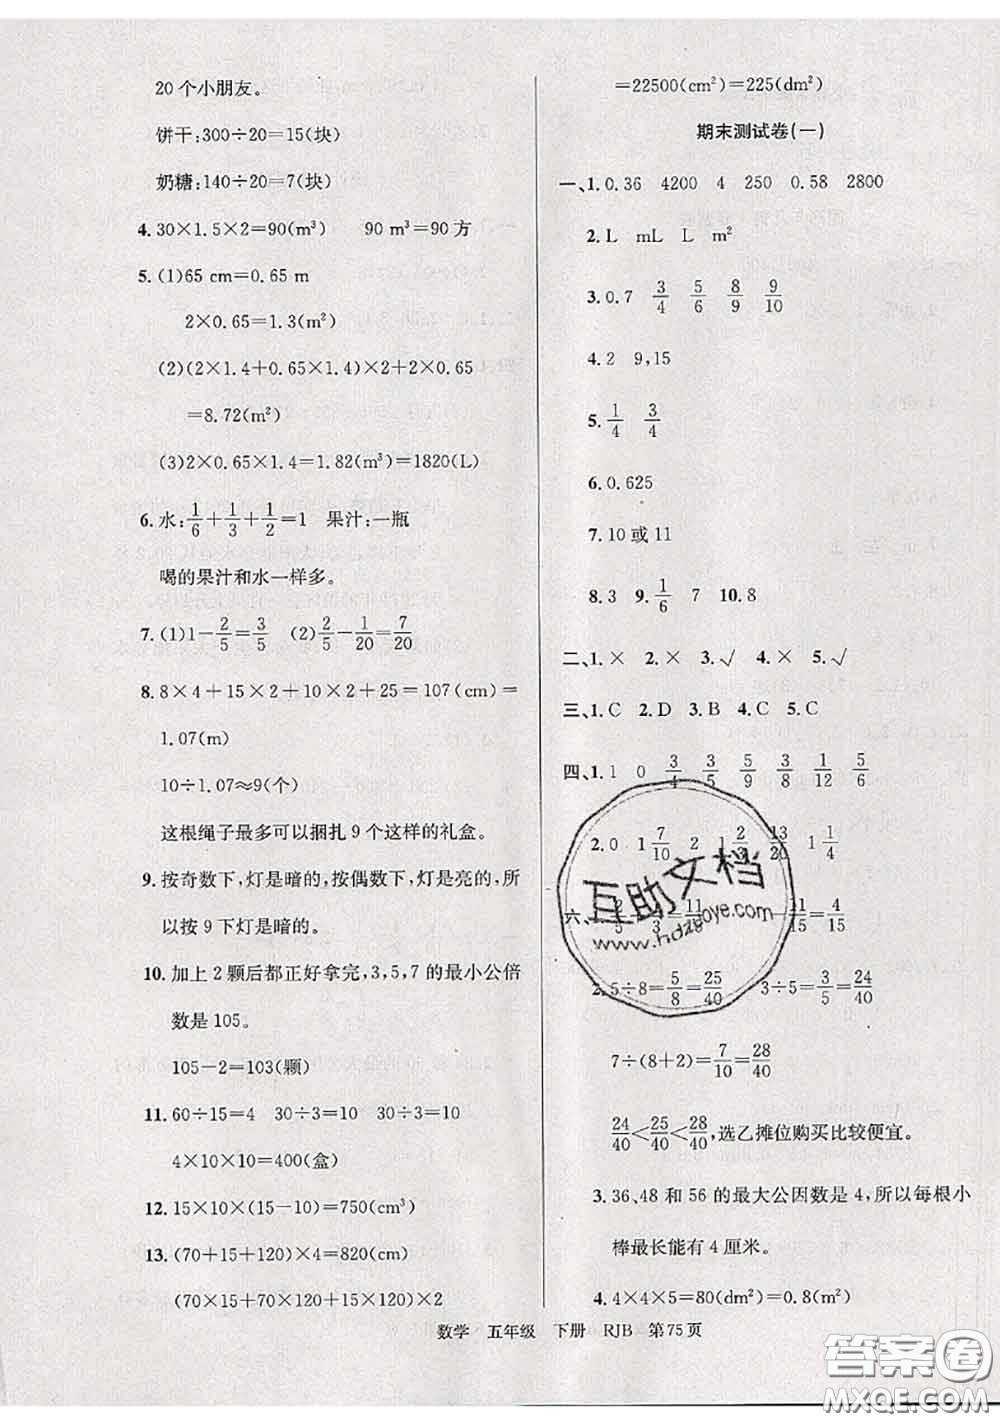 20个小朋友。
饼干:300÷20=15(块)
奶糖:140÷20=7(块)
4. 30×1.5×2=90(m³) 90 m³=90方
5. (1)65 cm=0.65 m
2×0.65=1.3(m²)
(2)(2×1.4+0.65×1.4)×2+2×0.65
=8.72(m²)
(3)2×0.65×1.4=1.82(m³)=1820(L)
6. 水:1/6+1/3+1/2=1 果汁:一瓶
喝的果汁和水一样多。
7. (1)1-2/5=3/5 (2)2/5-1/20=7/20
8. 8×4+15×2+10×2+25=107(cm)=
1.07(m)
10÷1.07≈9(个)
这根绳子最多可以捆扎9个这样的礼盒。
9. 按奇数下,灯是暗的,按偶数下,灯是亮的,所
以按9下灯是暗的。
10. 加上2颗后都正好拿完,3,5,7的最小公倍
数是105。
105-2=103(颗)
11. 60÷15=4 30÷3=10 30÷3=10
4×10×10=400(盒)
12. 15×10×(15-10)=750(cm³)
13. (70+15+120)×4=820(cm)
(70×15+70×120+15×120)×2
=22500(cm²)=225(dm²)
期末测试卷(一)
一、1. 0.36 4200 4 250 0.58 2800
2. L mL L m²
3. 0.7 3/4 5/6 8/9 9/10
4. 2 9,15
5. 1/4 3/4
6. 0.625
7. 10或11
8. 3 9. 1/6 7 10. 8
二、1. × 2. × 3. √ 4. × 5. √
三、1. C 2. D 3. B 4. C 5. C
四、1. 1 0 3/4 3/5 5/9 3/8 1/12 5/6
2. 0 1 7/10 2 1 2/3 13/20 1 1/4
六、 2/5 3/4 11 11/15=4/15
2. 5÷8=5/8=25/40 3÷5=3/5=24/40
7÷(8+2)=7/10=28/40
24/40<25/40<28/40,选乙摊位购买比较便宜。
3. 36,48和56的最大公因数是4,所以每根小
棒最长能有4厘米。
4. 4×4×5=80(dm²)=0.8(m²)
数学 五年级 下册 RJB 第75页
互助文档
www.hdzgoye.com
答案圈
MXQE.COM